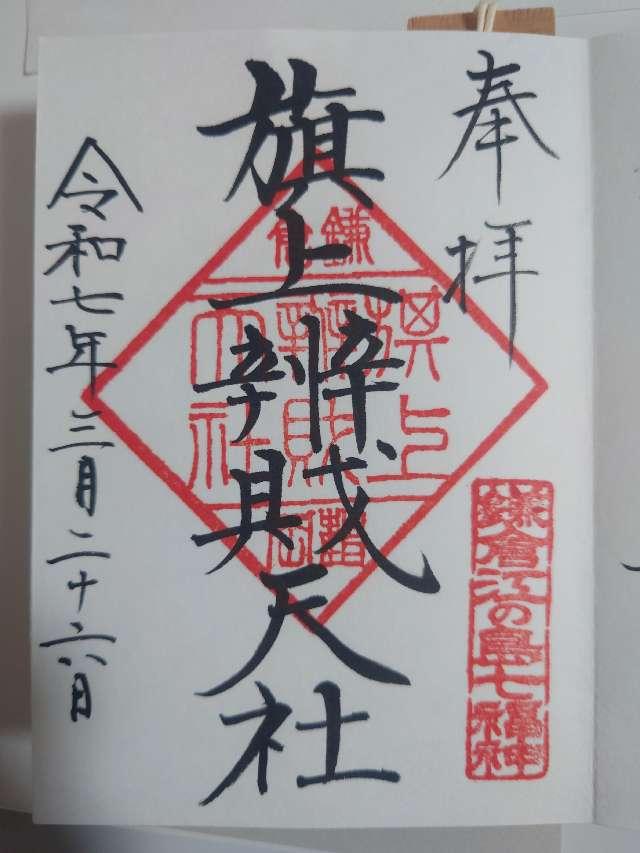 奉拝
鎌倉江の島七福神
旗上辨財天社
鎌倉
旗上
辨財
天社
令和七年三月二十六日